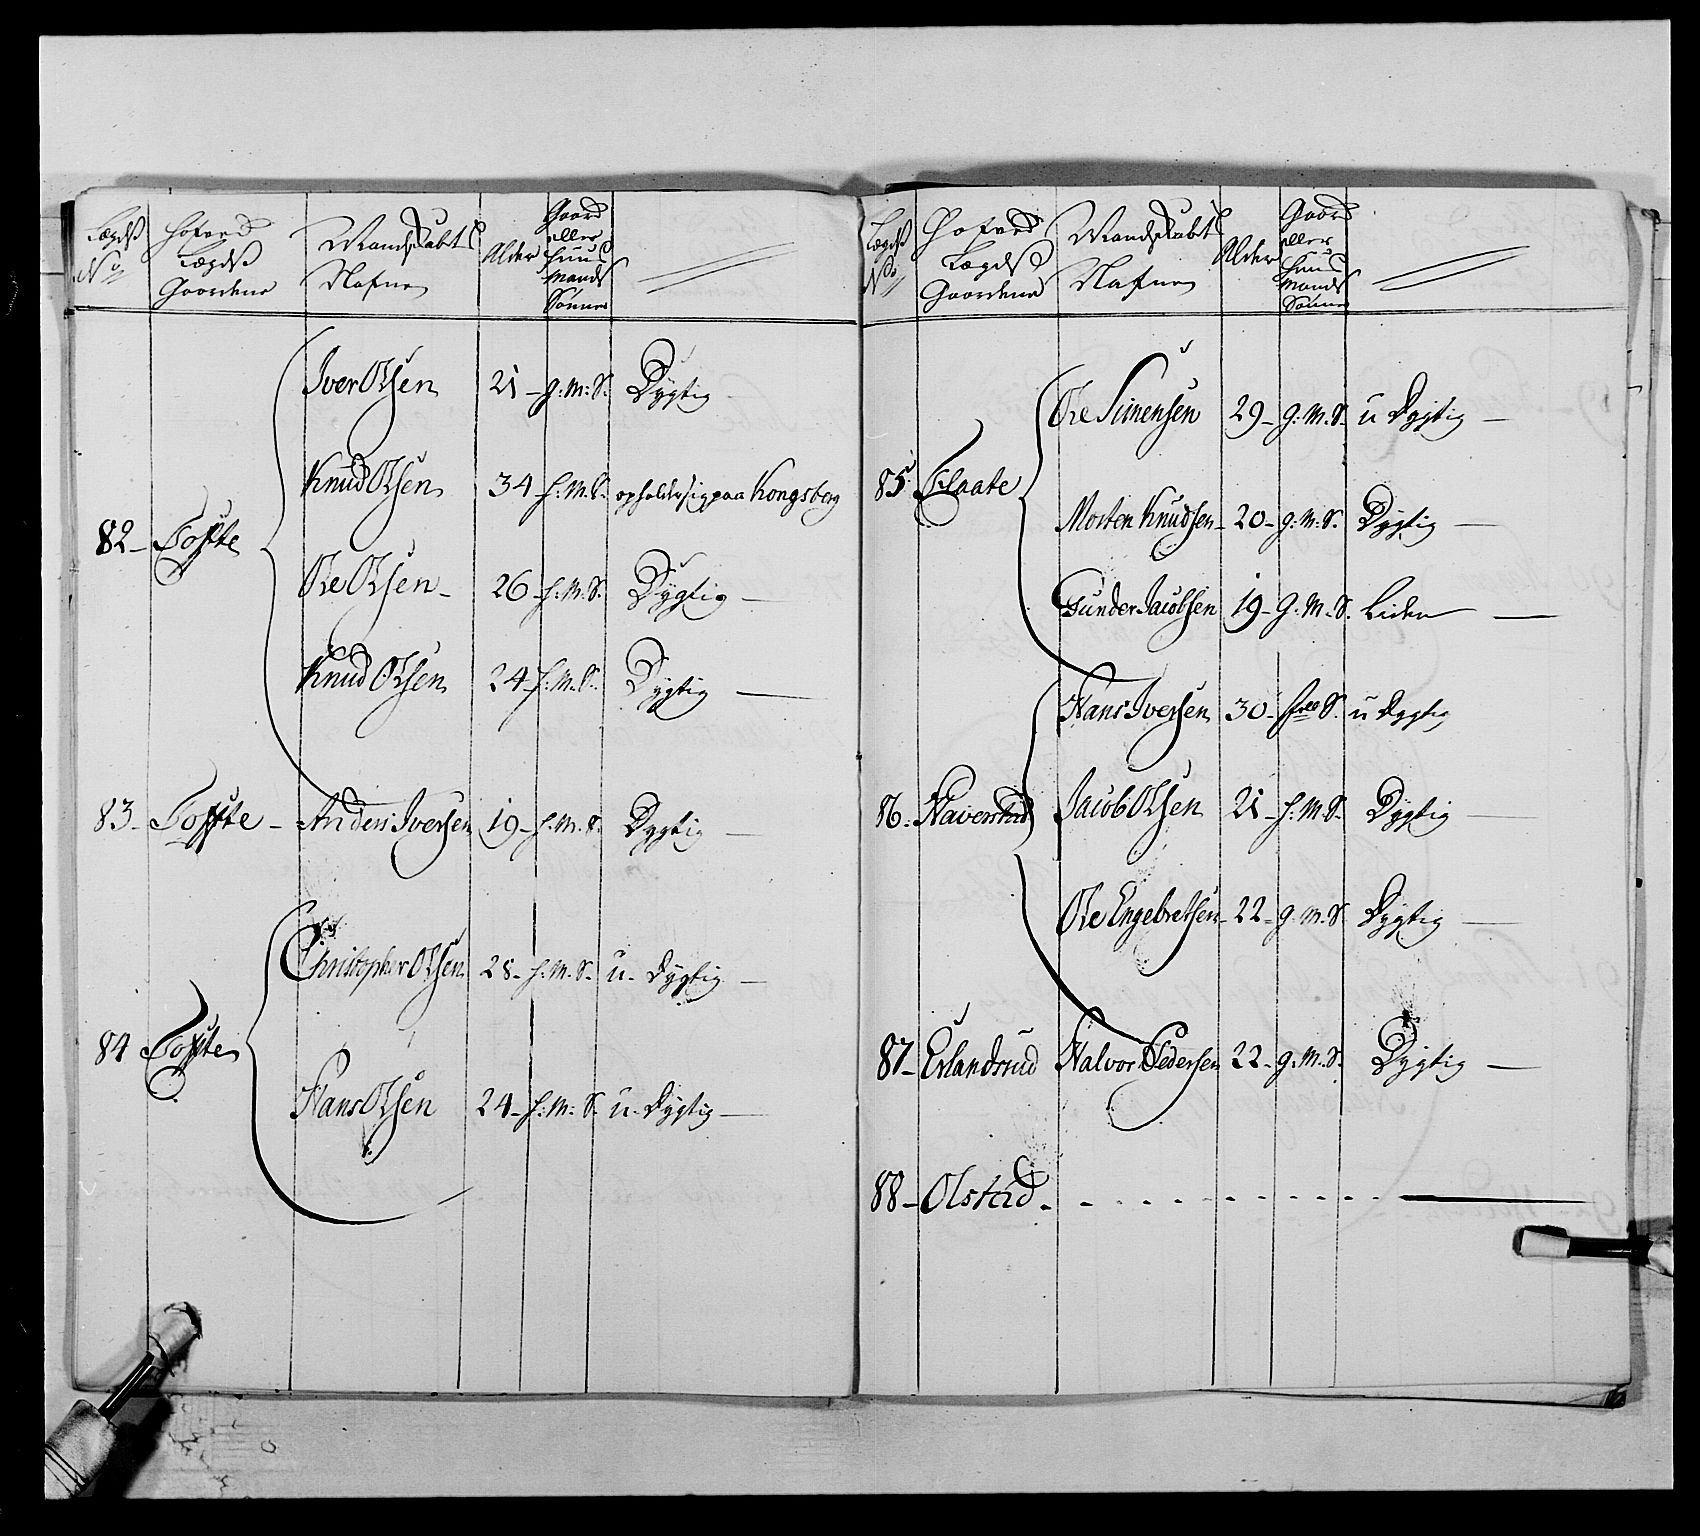 Lægds No
Hofved Lægds Gaardene
Mandskabets Nafne
Alder
Gaard eller Huus Mands Sønner
Iver Olsen 21 - g: M: S. Dygtig
Knud Olsen 34 - h. M. S. opholder sig paa Kongsberg
82 - Tofte
Ole Olsen - 26 - h. M. S. Dygtig —
Knud Olsen 24 - h: M. S. Dygtig —
83 - Tofte - Anders Iversen 19 - h. M. S. Dygtig —
Christopher Olsen 28 - h: M. S. u - Dygtig —
84 Tofte
Hans Olsen 24 - h: M: S. u - Dygtig —
Lægds No
Hofved Lægds Gaardene
Mandskabets Nafne
Alder
Gaard eller Huus Mands Sønner
Ole Simensen 29 - g: M. S. u Dygtig —
85 Flaate
Morten Knudsen - 20 - g: M: S. Dygtig —
Gunder Jacobsen 19 - g. M. S. Liden —
Hans Iversen 30 - S. u Dygtig
86. Haverstad Jacob Olsen 21 - h: M. S. Dygtig —
Ole Engebretsen - 22 - g. M. S Dygtig —
87 - Erlandsrud Halvor Pedersen 22 - g. M. S. Dygtig —
88 - Olstad - - - - - - - - - - - —